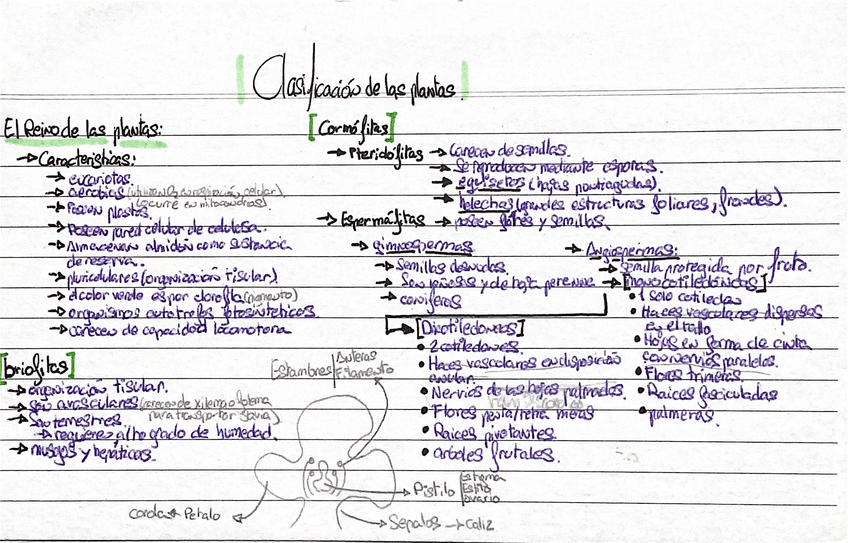 Clasificación de las plantas.
El Reino de las plantas:
→ Características:
→ eucariotas.
→ aerobias (utilizan O₂ en respiración celular)
(ocurre en mitocondrias)
→ Poseen plastos.
→ Poseen pared celular de celulosa.
→ Almacenan almidón como sustancia
de reserva.
→ pluricelulares (organización tisular)
→ el color verde es por clorofila (pigmento)
→ organismos autótrofos fotosintéticos.
→ carecen de capacidad locomotora
[briofitas]
→ organización tisular.
→ Son avasculares (carecen de xilema o floema
para transportar savia)
→ Son terrestres.
→ requieren alto grado de humedad.
→ musgos y hepáticas.
[Cormófitas]
→ Pteridófitas → Carecen de semillas.
→ Se reproducen mediante esporas.
→ equisetos (hojas puntiagudas).
→ helechos (grandes estructuras foliares, frondes).
→ Espermáfitas → poseen flores y semillas.
→ gimnospermas
→ Semillas desnudas.
→ Son leñosas y de hoja perenne
→ coníferas
→ Angiospermas:
→ semilla protegida por fruto.
→ [monocotiledóneas]
• 1 solo cotiledon
• Haces vasculares dispersos
en el tallo
• Hojas en forma de cinta
con nervios paralelos.
• Flores trímeras.
• Raices fasciculadas
• palmeras.
→ [Dicotiledoneas]
• 2 cotiledones.
• Haces vasculares en disposición
anular.
• Nervios de las hojas palmados.
• Flores penta/tetra meras
• Raices pivotantes.
• arboles frutales.
Estambres | Anteras
Filamento
→ Pistilo | Estigma
Estilo
ovario
corola ← Petalo
→ Sepalos → Caliz